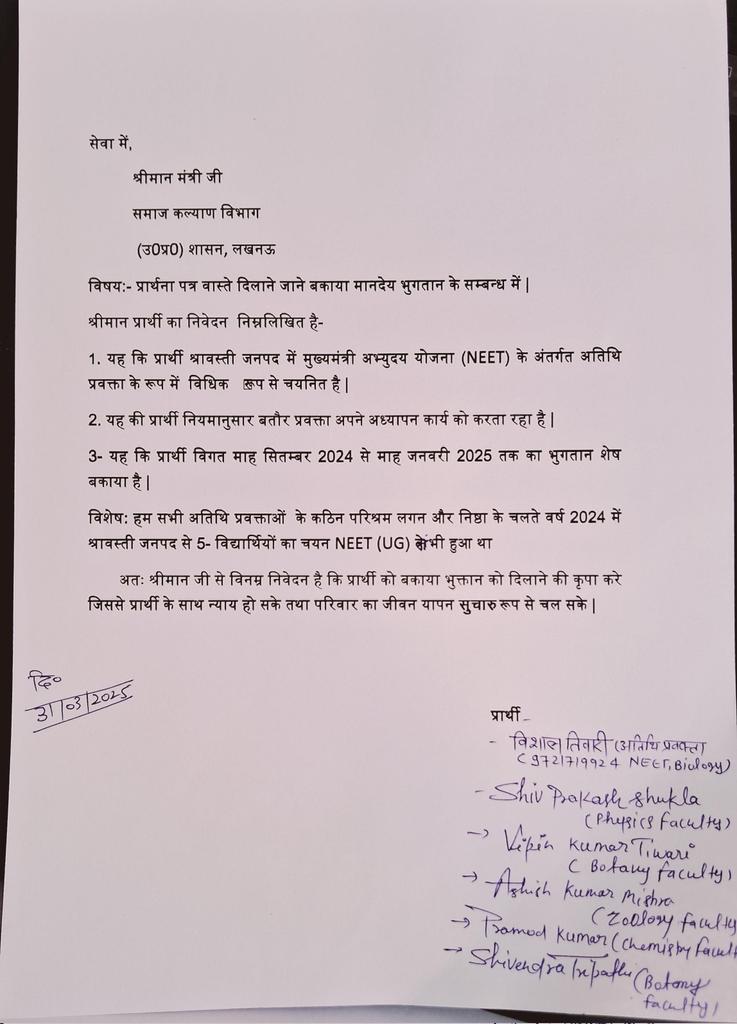 सेवा में,
श्रीमान मंत्री जी
समाज कल्याण विभाग
(उ0प्र0) शासन, लखनऊ
विषय:- प्रार्थना पत्र वास्ते दिलाने जाने बकाया मानदेय भुगतान के सम्बन्ध में |
श्रीमान प्रार्थी का निवेदन निम्नलिखित है-
1. यह कि प्रार्थी श्रावस्ती जनपद में मुख्यमंत्री अभ्युदय योजना (NEET) के अंतर्गत अतिथि
प्रवक्ता के रूप में विधिक रूप से चयनित है |
2. यह की प्रार्थी नियमानुसार बतौर प्रवक्ता अपने अध्यापन कार्य को करता रहा है |
3- यह कि प्रार्थी विगत माह सितम्बर 2024 से माह जनवरी 2025 तक का भुगतान शेष
बकाया है |
विशेष: हम सभी अतिथि प्रवक्ताओं के कठिन परिश्रम लगन और निष्ठा के चलते वर्ष 2024 में
श्रावस्ती जनपद से 5- विद्यार्थियों का चयन NEET (UG) भी हुआ था
अतः श्रीमान जी से विनम्र निवेदन है कि प्रार्थी को बकाया भुक्तान को दिलाने की कृपा करे
जिससे प्रार्थी के साथ न्याय हो सके तथा परिवार का जीवन यापन सुचारु रूप से चल सके |
दि०
31/03/2025
प्रार्थी-
- विशाल तिवारी (अतिथि प्रवक्ता
(9721719924 NEET, Biology)
- Shiv Prakash Shukla
(Physics faculty)
→ Vipin Kumar Tiwari
(Botany faculty)
→ Ashish Kumar Mishra
(Zoology faculty
→ Pramod Kumar (Chemistry facult
→ Shivendra Tripathi (Botany
faculty)